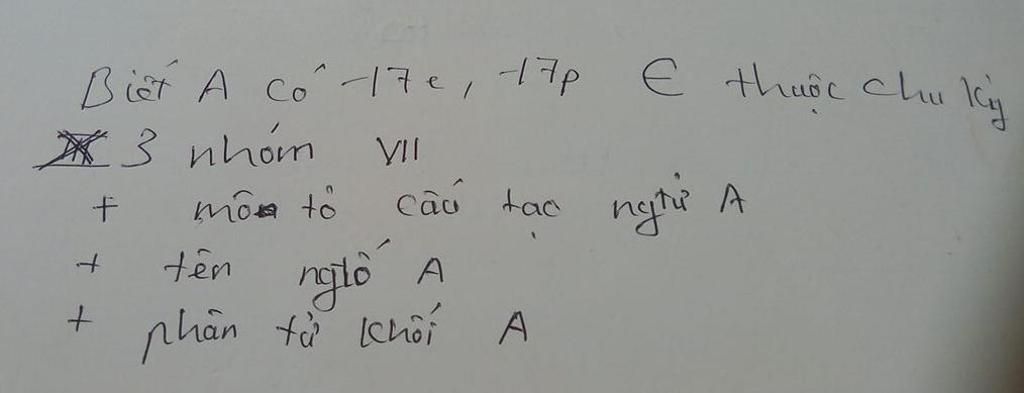 Biết A có -17e, -17p ∈ thuộc chu kỳ
3 nhóm VII
+ mô tả cấu tạo ngtử A
+ tên ngtố A
+ phân tử khối A